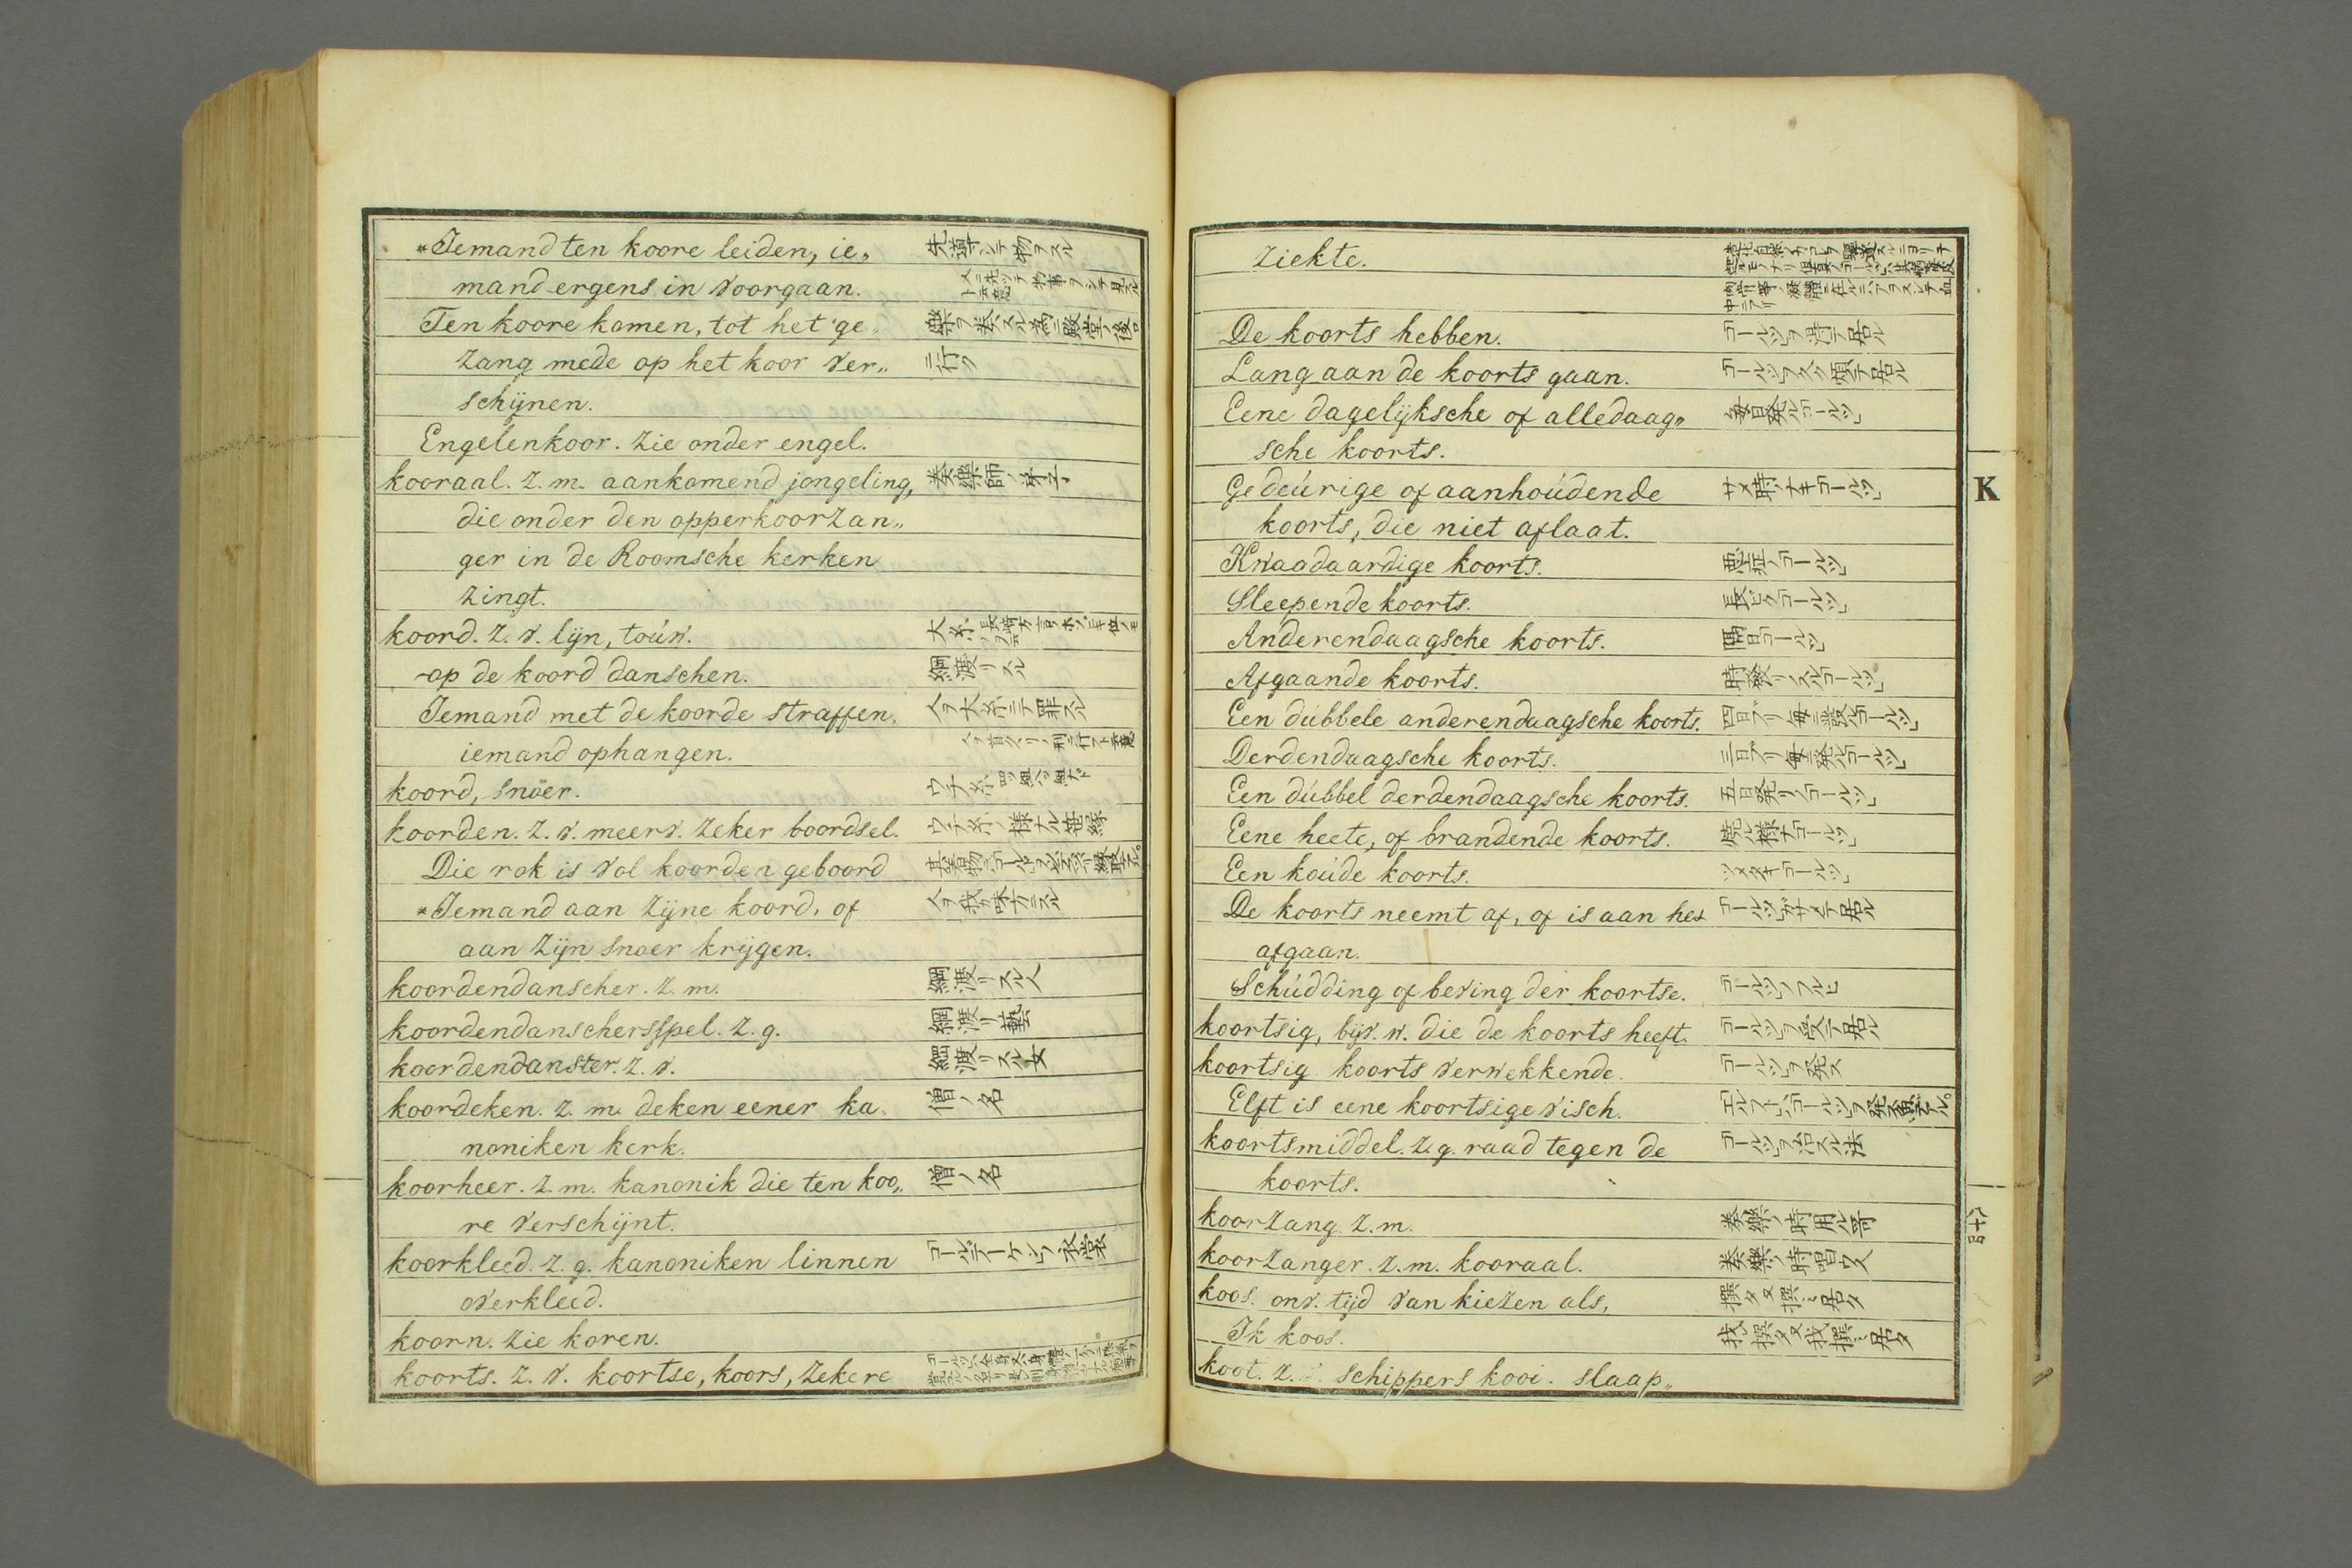 *Iemand ten koore leiden, ie„ 先導シテ物ヲスル
mand ergens in voorgaan.
Ten koore komen, tot het ge„ 樂ヲ奏スル為ニ殿堂ノ後ロ
zang mede op het koor ver„ ニ行ク
schijnen.
Engelenkoor. zie onder engel.
kooraal. z. m. aankomend jongeling, 奏樂師ノ弟子
die onder den opperkoorzan„
ger in de Roomsche kerken
zingt.
koord. z. v. lijn, toúw. 大糸
op de koord danschen. 綱渡リスル
Iemand met de koorde straffen. 人ヲ大糸ニテ罪スル
iemand ophangen.
koord, snoer. ウチ糸
koorden. z. v. meerv. zeker boordsel. ウチ糸ノ様ナル笹縁
Die rok is vol koorden geboord
*Iemand aan zijne koord, of 人ヲ我ガ味方ニスル
aan zijn snoer krijgen.
koordendanscher. z. m. 綱渡リスル人
koordendanschersspel. z. g. 綱渡リ藝
koordendanster. z. v. 綱渡リスル女
koordeken. z. m. deken eener ka„ 僧ノ名
noniken kerk.
koorheer. z. m. kanonik die ten koo„ 僧ノ名
re verschijnt.
koorkleed. z. g. kanoniken linnen コールデーケンノ衣裳
overkleed.
koorn. zie koren.
koorts. z. v. koortse, koors, zekere
ziekte.
De koorts hebben. コールツヲ持テ居ル
Lang aan de koorts gaan. コールツヲ久ク煩テ居ル
Eene dagelijksche of alledaag„ 毎日発ルコールツ
sche koorts.
Gedeúrige of aanhoúdende サメ時ノナキコールツ
koorts, die niet aflaat.
Kwaadaardige koorts. 悪症ノコールツ
Sleepende koorts. 長ビクコールツ
Anderendaagsche koorts. 隔日コールツ
Afgaande koorts. 時発リスルコールツ
Een dúbbele anderendaagsche koorts. 四日ブリ毎ニ発ルコールツ
Derdendaagsche koorts. 三日ブリ毎ニ発ルコールツ
Een dúbbel derdendaagsche koorts. 五日発リノコールツ
Eene heete, of brandende koorts. 焼ル様ナコールツ
Een koúde koorts. ツメタキコールツ
De koorts neemt af, of is aan het コールツガサメテ居ル
afgaan.
Schúdding of beving der koortse. コールツノフルヒ
koortsig, bijv. w. die de koorts heeft. コールツヲ受テ居ル
koortsig koorts verwekkende. コールツヲ発ス
Elft is eene koortsige visch.
koortsmiddel. z. g. raad tegen de コールツヲ治スル法
koorts.
koorzang. z. m. 奏樂ノ時用ル哥
koorzanger. z. m. kooraal. 奏樂ノ時唱フ人
koos. onv. tijd van kiezen als, 撰タ又撰ミ居タ
Ik koos. 我撰タ又我撰ミ居タ
koot. z. schippers kooi. slaap„
K